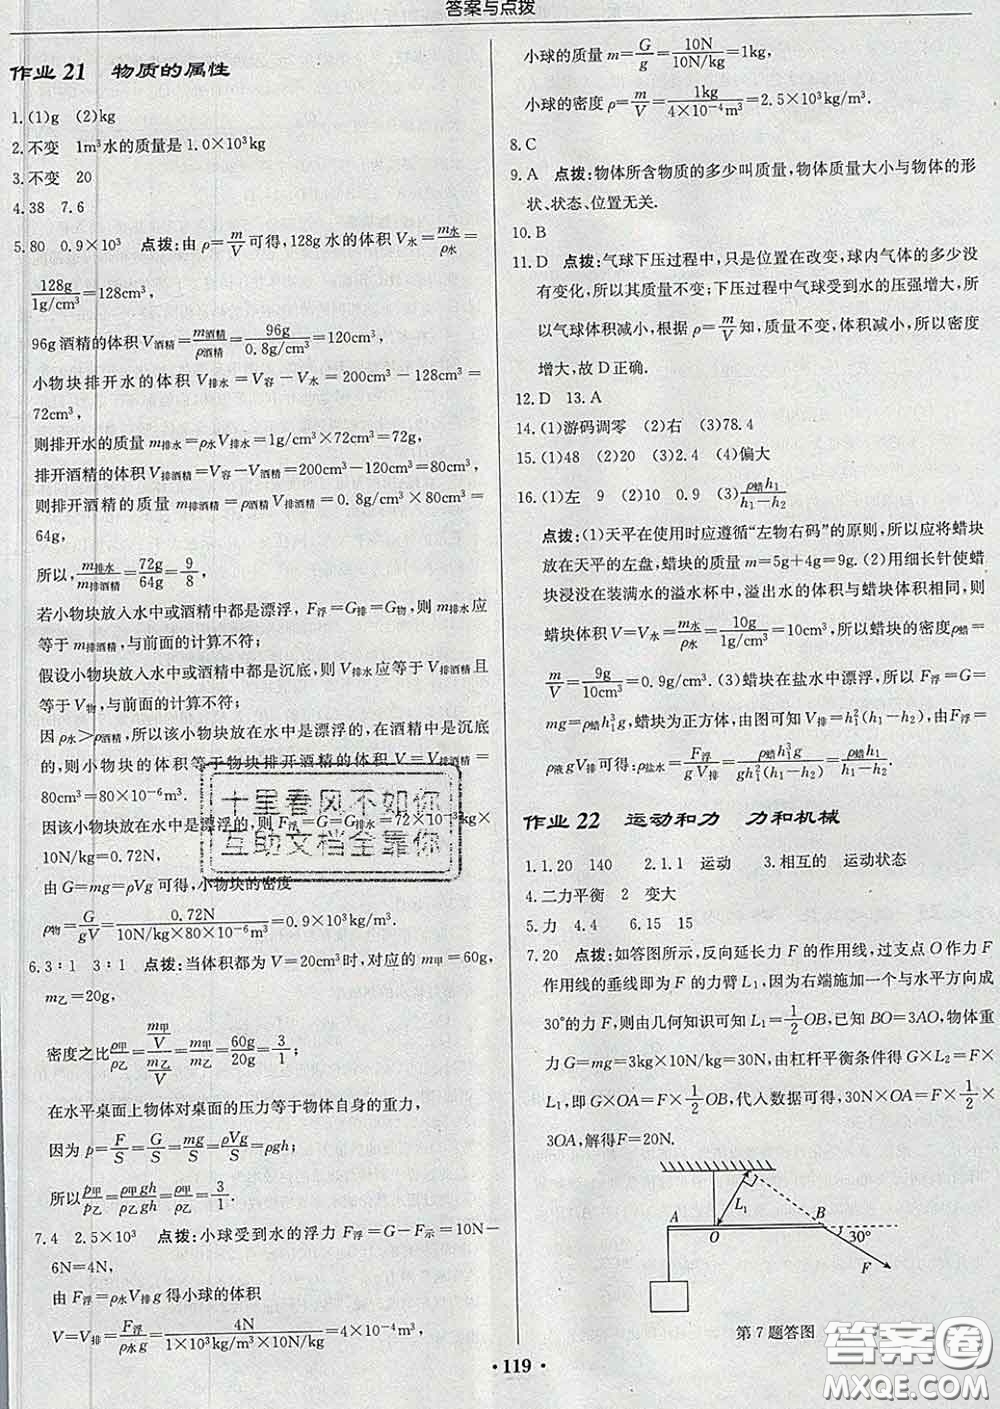 答案与点拨
作业 21　物质的属性
1.(1)g　(2)kg
2.不变　1m³水的质量是1.0×10³kg
3.不变　20
4.38　7.6
5.80　0.9×10³　点拨:由 ρ=m/V 可得,128g 水的体积 V水=m水/ρ水=
128g/1g/cm³=128cm³,
96g酒精的体积 V酒精=m酒精/ρ酒精=96g/0.8g/cm³=120cm³,
小物块排开水的体积 V排水=V容-V水=200cm³-128cm³=
72cm³,
则排开水的质量 m排水=ρ水V排水=1g/cm³×72cm³=72g,
排开酒精的体积 V排酒精=V容-V酒精=200cm³-120cm³=80cm³
则排开酒精的质量 m排酒精=ρ酒精V排酒精=0.8g/cm³×80cm³=
64g,
所以,m排水/m排酒精=72g/64g=9/8,
若小物块放入水中或酒精中都是漂浮,F浮=G排=G物,则 m排水应
等于 m排酒精,与前面的计算不符;
假设小物块放入水中或酒精中都是沉底,则 V排水应等于V排酒精且
等于 V物,与前面的计算不符;
因 ρ水>ρ酒精,所以该小物块放在水中是漂浮的,在酒精中是沉底
的,则小物块的体积等于物块排开酒精的体积 V=V排酒精=
80cm³=80×10⁻⁶m³,
因该小物块放在水中是漂浮的,则 F浮=G=G排水=72×10⁻³kg×
10N/kg=0.72N,
由 G=mg=ρVg 可得,小物块的密度
ρ物=G/gV=0.72N/10N/kg×80×10⁻⁶m³=0.9×10³kg/m³.
6.3∶1　3∶1　点拨:当体积都为 V=20cm³时,对应的 m甲=60g,
m乙=20g,
密度之比ρ甲/ρ乙=m甲/V/m乙/V=m甲/m乙=60g/20g=3/1;
在水平桌面上物体对桌面的压力等于物体自身的重力,
因为 p=F/S=G/S=mg/S=ρVg/S=ρgh,
所以p甲/p乙=ρ甲gh/ρ乙gh=ρ甲/ρ乙=3/1.
7.4　2.5×10³　点拨:小球受到水的浮力 F浮=G-F示=10N-
6N=4N,
由 F浮=ρ水V排g得小球的体积
V=V排=F浮/ρ水g=4N/1×10³kg/m³×10N/kg=4×10⁻⁴m³,
小球的质量 m=G/g=10N/10N/kg=1kg,
小球的密度 ρ=m/V=1kg/4×10⁻⁴m³=2.5×10³kg/m³.
8.C
9.A　点拨:物体所含物质的多少叫质量,物体质量大小与物体的形
状、状态、位置无关.
10.B
11.D　点拨:气球下压过程中,只是位置在改变,球内气体的多少没
有变化,所以其质量不变;下压过程中气球受到水的压强增大,所
以气球体积减小,根据 ρ=m/V知,质量不变,体积减小,所以密度
增大,故D正确.
12.D　13.A
14.(1)游码调零　(2)右　(3)78.4
15.(1)48　(2)20　(3)2.4　(4)偏大
16.(1)左　9　(2)10　0.9　(3)ρ蜡h₁/h₁-h₂
点拨:(1)天平在使用时应遵循“左物右码”的原则,所以应将蜡块
放在天平的左盘,蜡块的质量 m=5g+4g=9g.(2)用细长针使蜡
块浸没在装满水的溢水杯中,溢出水的体积与蜡块体积相同,则
蜡块体积 V=V水=m水/ρ水=10g/1g/cm³=10cm³,所以蜡块的密度ρ蜡=
m/V=9g/10cm³=0.9g/cm³.(3)蜡块在盐水中漂浮,所以 F浮=G=
mg=ρ蜡h₁³g,蜡块为正方体,由图可知 V排=h₁²(h₁-h₂),由F浮=
ρ液gV排可得:ρ盐水=F浮/gV排=ρ蜡h₁³g/gh₁²(h₁-h₂)=ρ蜡h₁/h₁-h₂.
作业 22　运动和力　力和机械
1.1.20　140　2.1.1　运动　3.相互的　运动状态
4.二力平衡　2　变大
5.力　4.4　6.15　15
7.20　点拨:如答图所示,反向延长力 F 的作用线,过支点 O 作力 F
作用线的垂线即为力 F 的力臂 L₁,因为右端施加一个与水平方向成
30°的力 F,则由几何知识可知 L₁=1/2OB,已知 BO=3AO,物体重
力G=mg=3kg×10N/kg=30N,由杠杆平衡条件得 G×L₂=F×
L₁,即 G×OA=F×1/2OB,代入数据可得,30N×OA=F×1/2×
3OA,解得F=20N.
A　O　B　L₁　30°　F
第 7 题答图
十里春风不如你
互助文档全靠你
·119·
答案卷
MXQE.COM